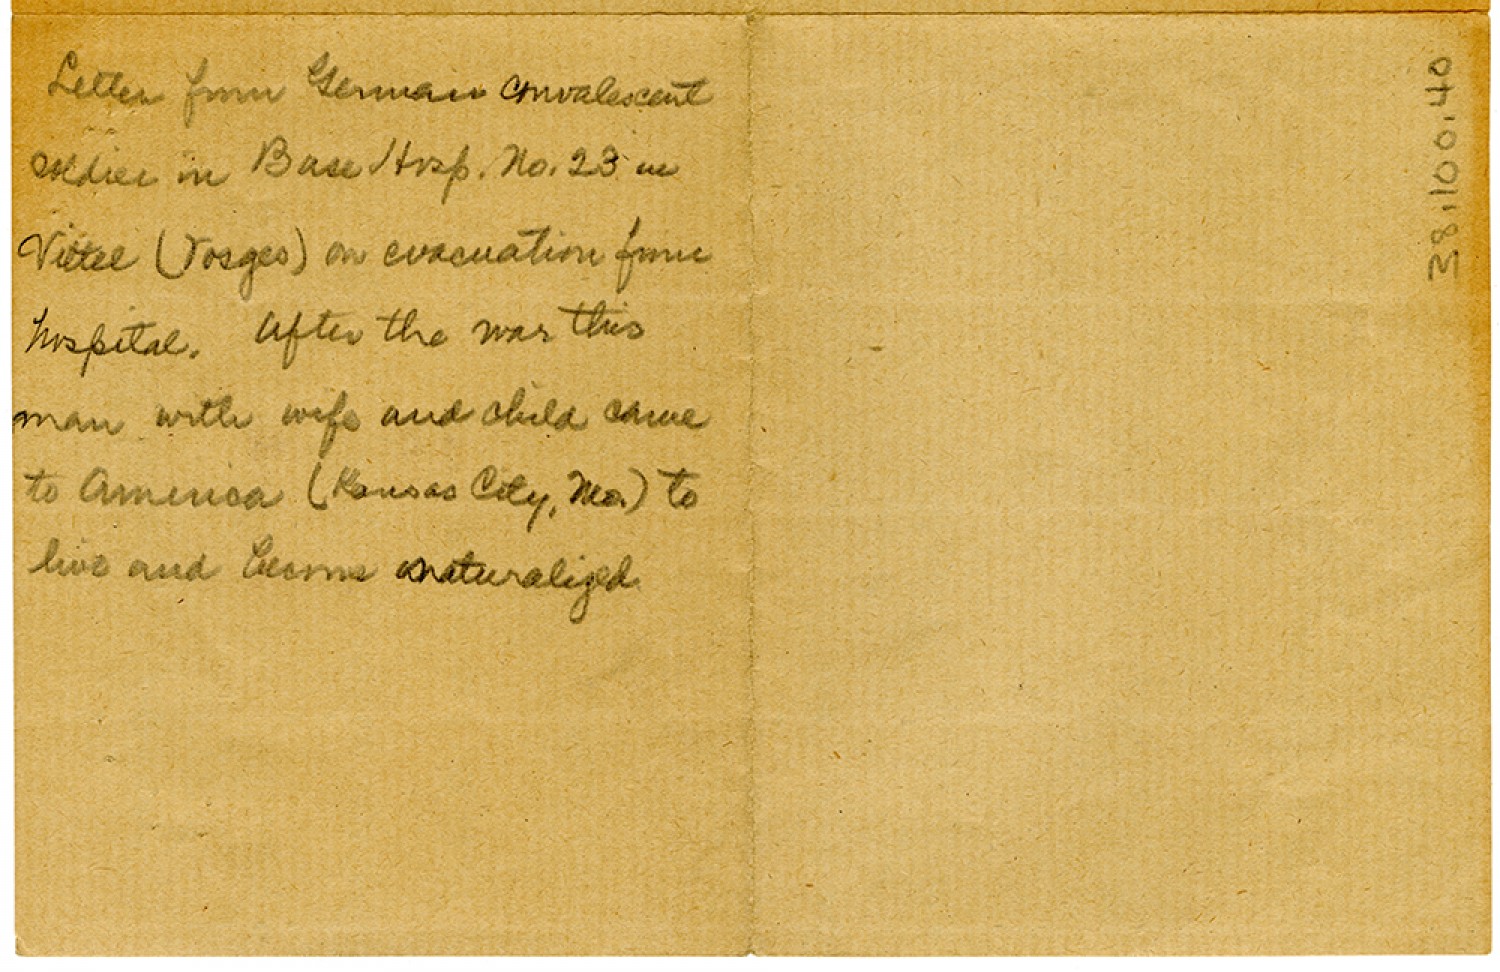 Letter from German convalescent
soldier in Base Hosp. No. 23 in
Vittel (Vosges) on evacuation from
hospital. After the war this
man with wife and child came
to America (Kansas City, Mo.) to
live and become naturalized
38.100.40